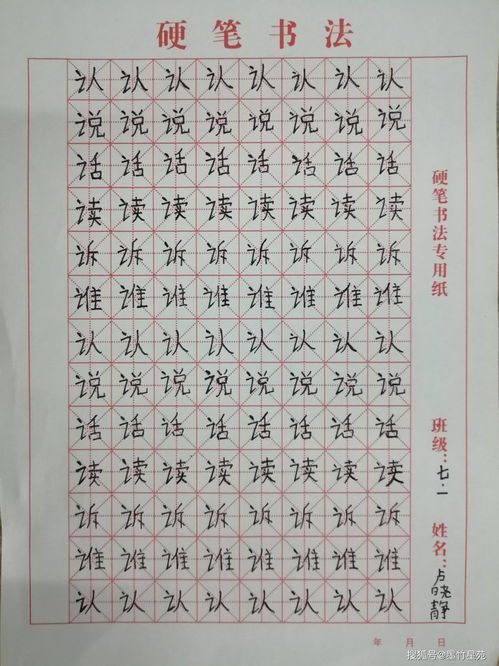 硬笔书法
认认认认认认认认
说说说说说说说说
话话话话话话话话
读读读读读读读读
诉诉诉诉诉诉诉诉
谁谁谁谁谁谁谁谁
认认认认认认认认
说说说说说说说说
话话话话话话话话
读读读读读读读读
诉诉诉诉诉诉诉诉
谁谁谁谁谁谁谁谁
认认认认认认认认
硬笔书法专用纸
班级：七.一
姓名：卢晓静
年 月 日
搜狐号@墨竹星苑